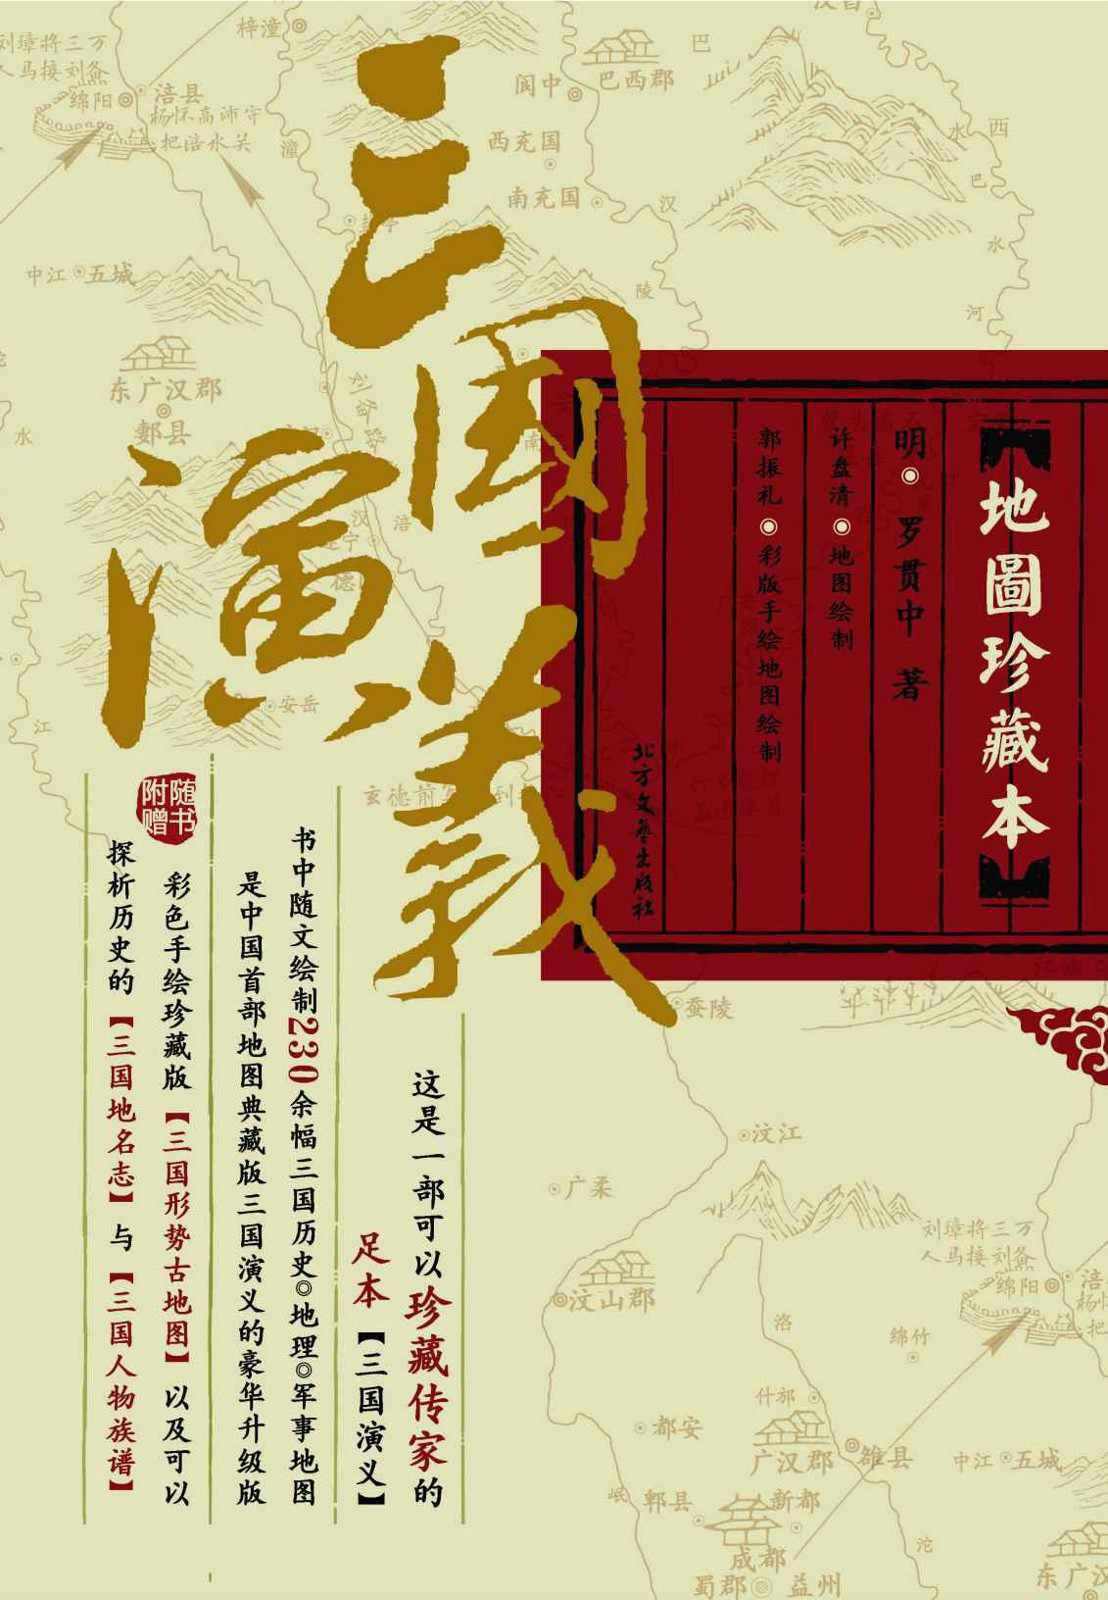 三國演義
地圖珍藏本
明◎罗贯中 著
许盘清◎地图绘制
郭振礼◎彩版手绘地图绘制
北方文藝出版社
这是一部可以珍藏传家的
足本【三国演义】
书中随文绘制230余幅三国历史◎地理◎军事地图
是中国首部地图典藏版三国演义的豪华升级版
随书
附赠
彩色手绘珍藏版【三国形势古地图】以及可以
探析历史的【三国地名志】与【三国人物族谱】
梓潼
刘璋将三万
人马接刘备
绵阳
涪县
杨怀高沛守
把涪水关
潼
阆中
巴
巴西郡
西充国
南充国
汉
水
西
巴
水
河
陵
中江
五城
东广汉郡
郪县
水
涪
汉
德
安岳
江
玄德前
到
蚕陵
汶江
广柔
汶山郡
刘璋将三万
人马接刘备
绵阳
涪
杨
把
洛
绵竹
什邡
都安
广汉郡
雒县
中江
五城
岷
郫县
新都
成都
蜀郡
益州
沱
东广